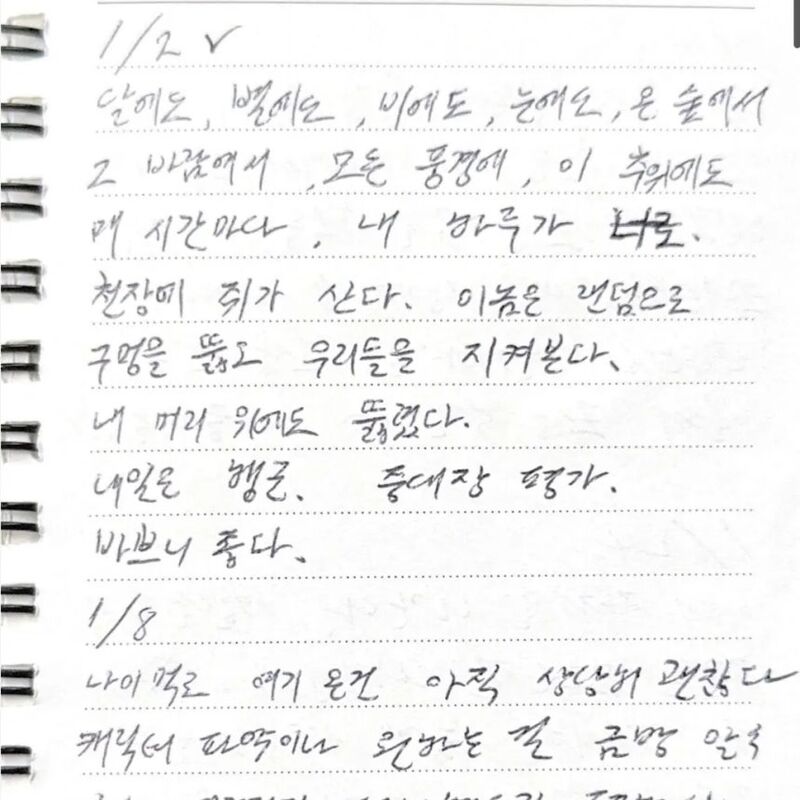 1/2 ✓
달에도, 별에도, 비에도, 눈에도, 온 숲에서
그 바람에서, 모든 풍경에, 이 추위에도
매 시간마다, 내 하루가 너로.
천장에 쥐가 산다. 이놈은 랜덤으로
구멍을 뚫고 우리들을 지켜본다.
내 머리 위에도 뚫렸다.
내일은 행군. 중대장 평가.
바쁘니 좋다.
1/8
나이먹고 여기 온건 아직 상당히 괜찮다
캐릭터 파악이나 원하는 걸 금방 알